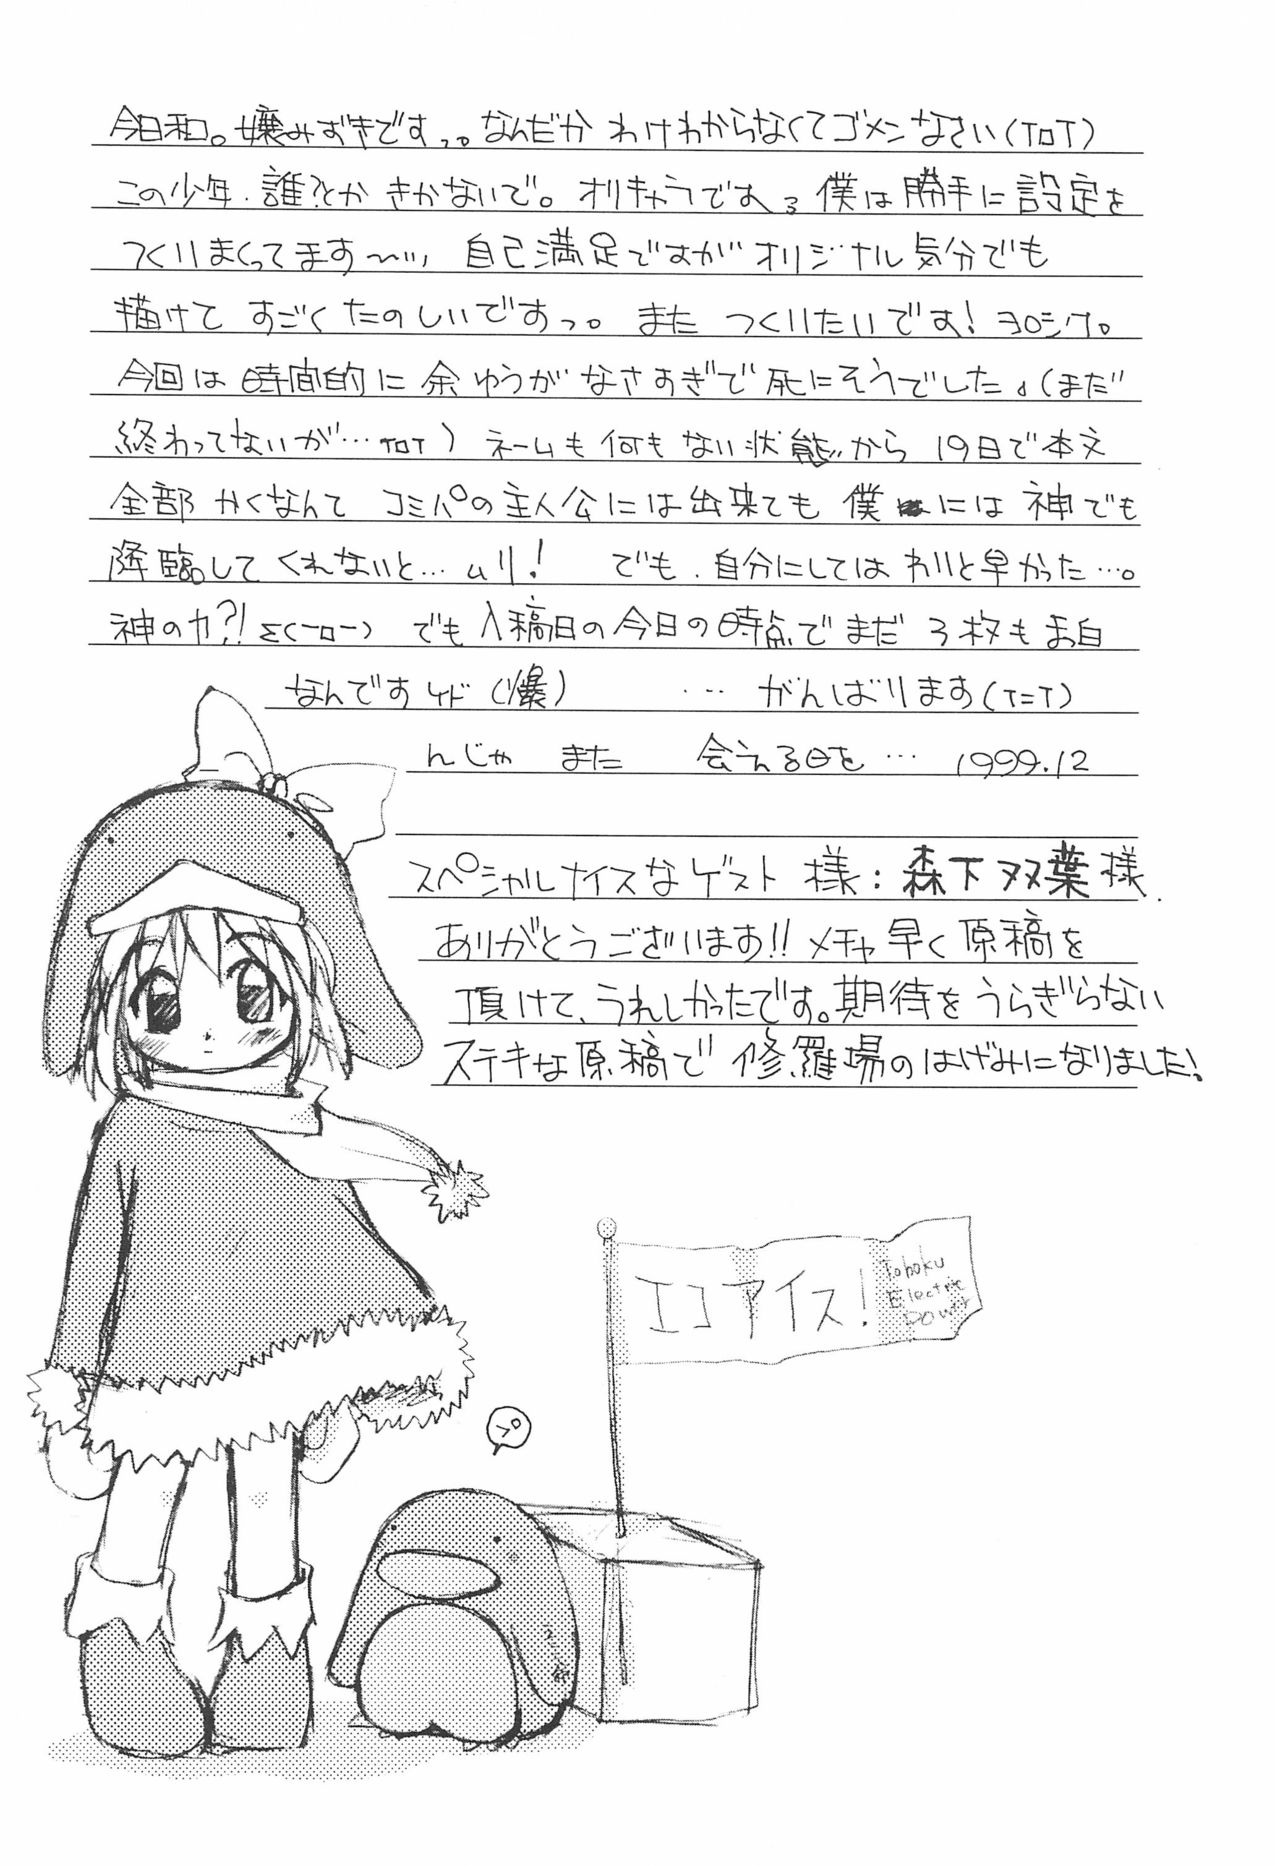 今日和。嬢みずきですっ。なんだか わけわからなくてゴメンなさい(ToT)
この少年.誰?とか きかないで。オリキャラですよ 僕は勝手に設定を
つくりまくってます〜〜ッ,, 自己満足ですがオリジナル気分でも
描けて すごくたのしいですっ。また つくりたいです! ヨロシク。
今回は 時間的に 余ゆうが なさすぎで 死にそうでした。(まだ
終わってないが…ToT) ネームも何もない状態から 19日で本文
全部 かくなんて コミパの主人公には出来ても 僕には 神でも
降臨してくれないと… ムリ! でも.自分にしてはわりと早かった…。
神の力?! Σ(ーロー) でも入稿日の今日の時点でまだ 3枚もま白
なんですケド(爆) … がんばります(T=T)
んじゃ また 会える日を… 1999.12
スペシャルナイスなゲスト様:森下双葉様
ありがとうございます!! メチャ早く原稿を
頂けて、うれしかったです。期待をうらぎらない
ステキな原稿で 修羅場のはげみになりました!
エコアイス!
Tohoku
Electric
Power